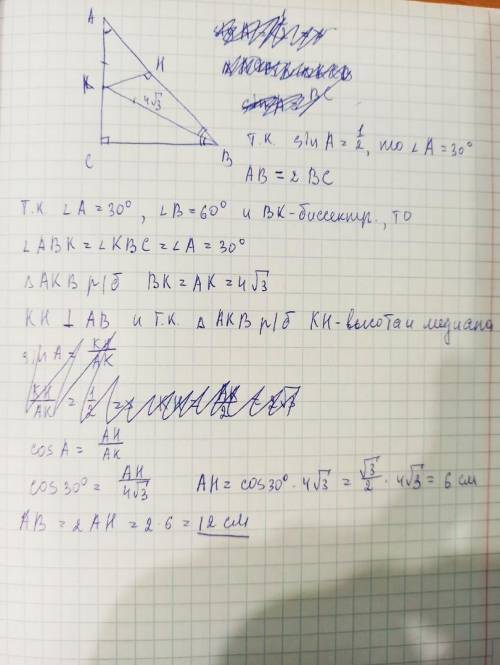 A
K
H
4√3
C
B
BC
т.к. sin A = 1/2, то ∠A = 30°
AB = 2 BC
т.к ∠A = 30°, ∠B = 60° и BK - биссектр., то
∠ABK = ∠KBC = ∠A = 30°
△ AKB р/б BK = AK = 4√3
KH ⊥ AB и т.к. △ AKB р/б KH - высота и медиана
sin A = KH/AK
KH/AK = 1/2
cos A = AH/AK
cos 30° = AH/4√3 AH = cos 30° · 4√3 = √3/2 · 4√3 = 6 см
AB = 2 AH = 2 · 6 = 12 см